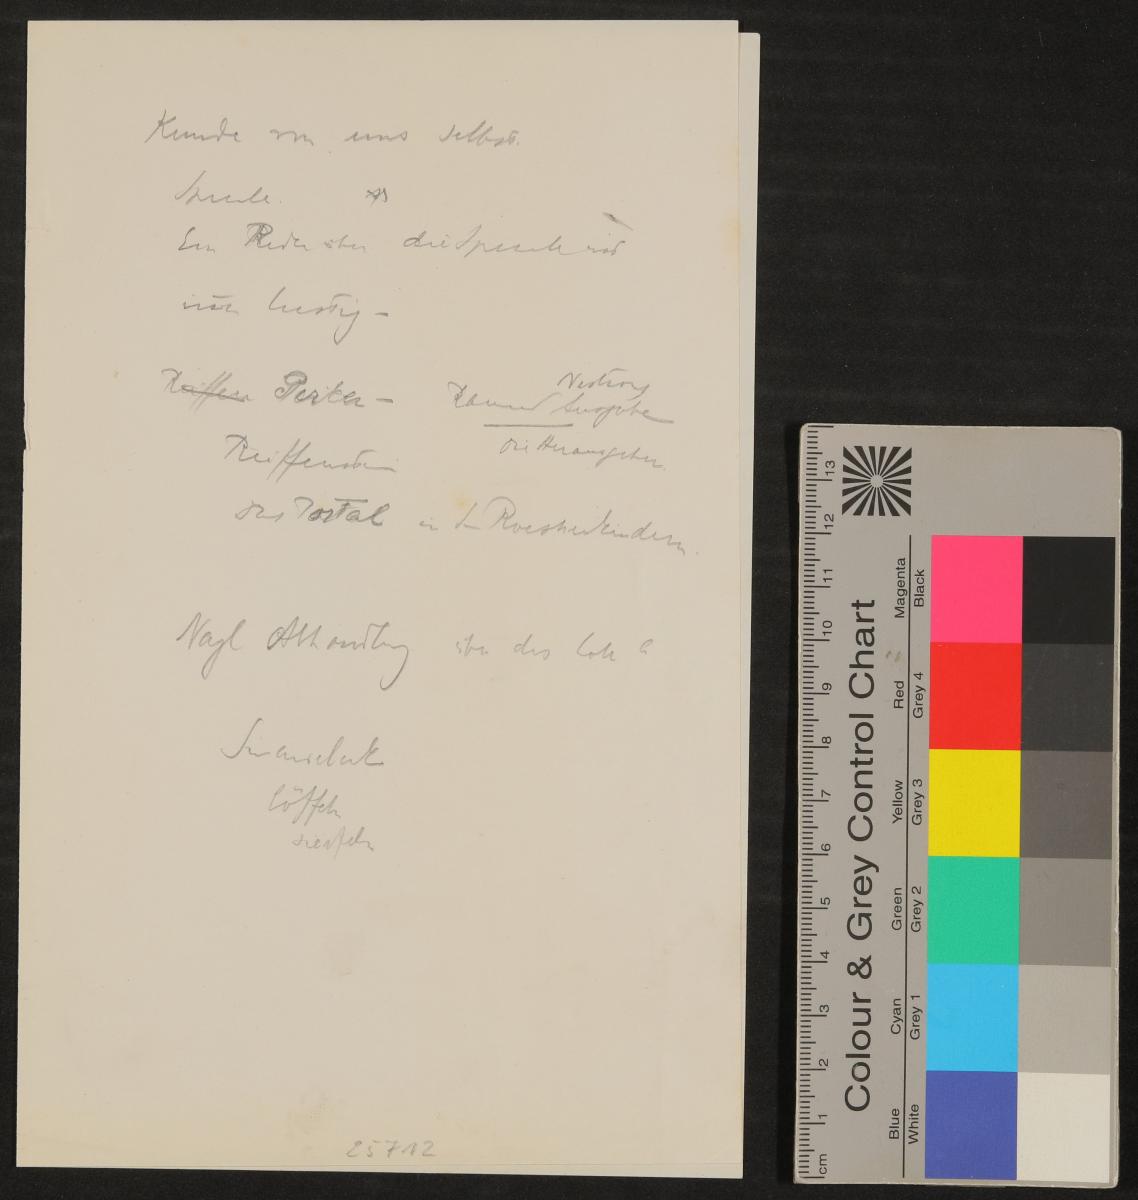 Kunde von uns selbst.
Sprache.
Ein Reden über die Sprache wird
nicht lustig –
Reiffen Perker – Raimund
Nestroy
Ausgabe
die Herausgeber
Reiffenstein
das Portal in den Roesnerkindern
Nagl Abhandlung über das
Löffeln
25712
13
12
11
10
9
8
7
6
5
4
3
2
1
cm
Colour & Grey Control Chart
Blue Cyan Green Yellow Red Magenta
White Grey 1 Grey 2 Grey 3 Grey 4 Black